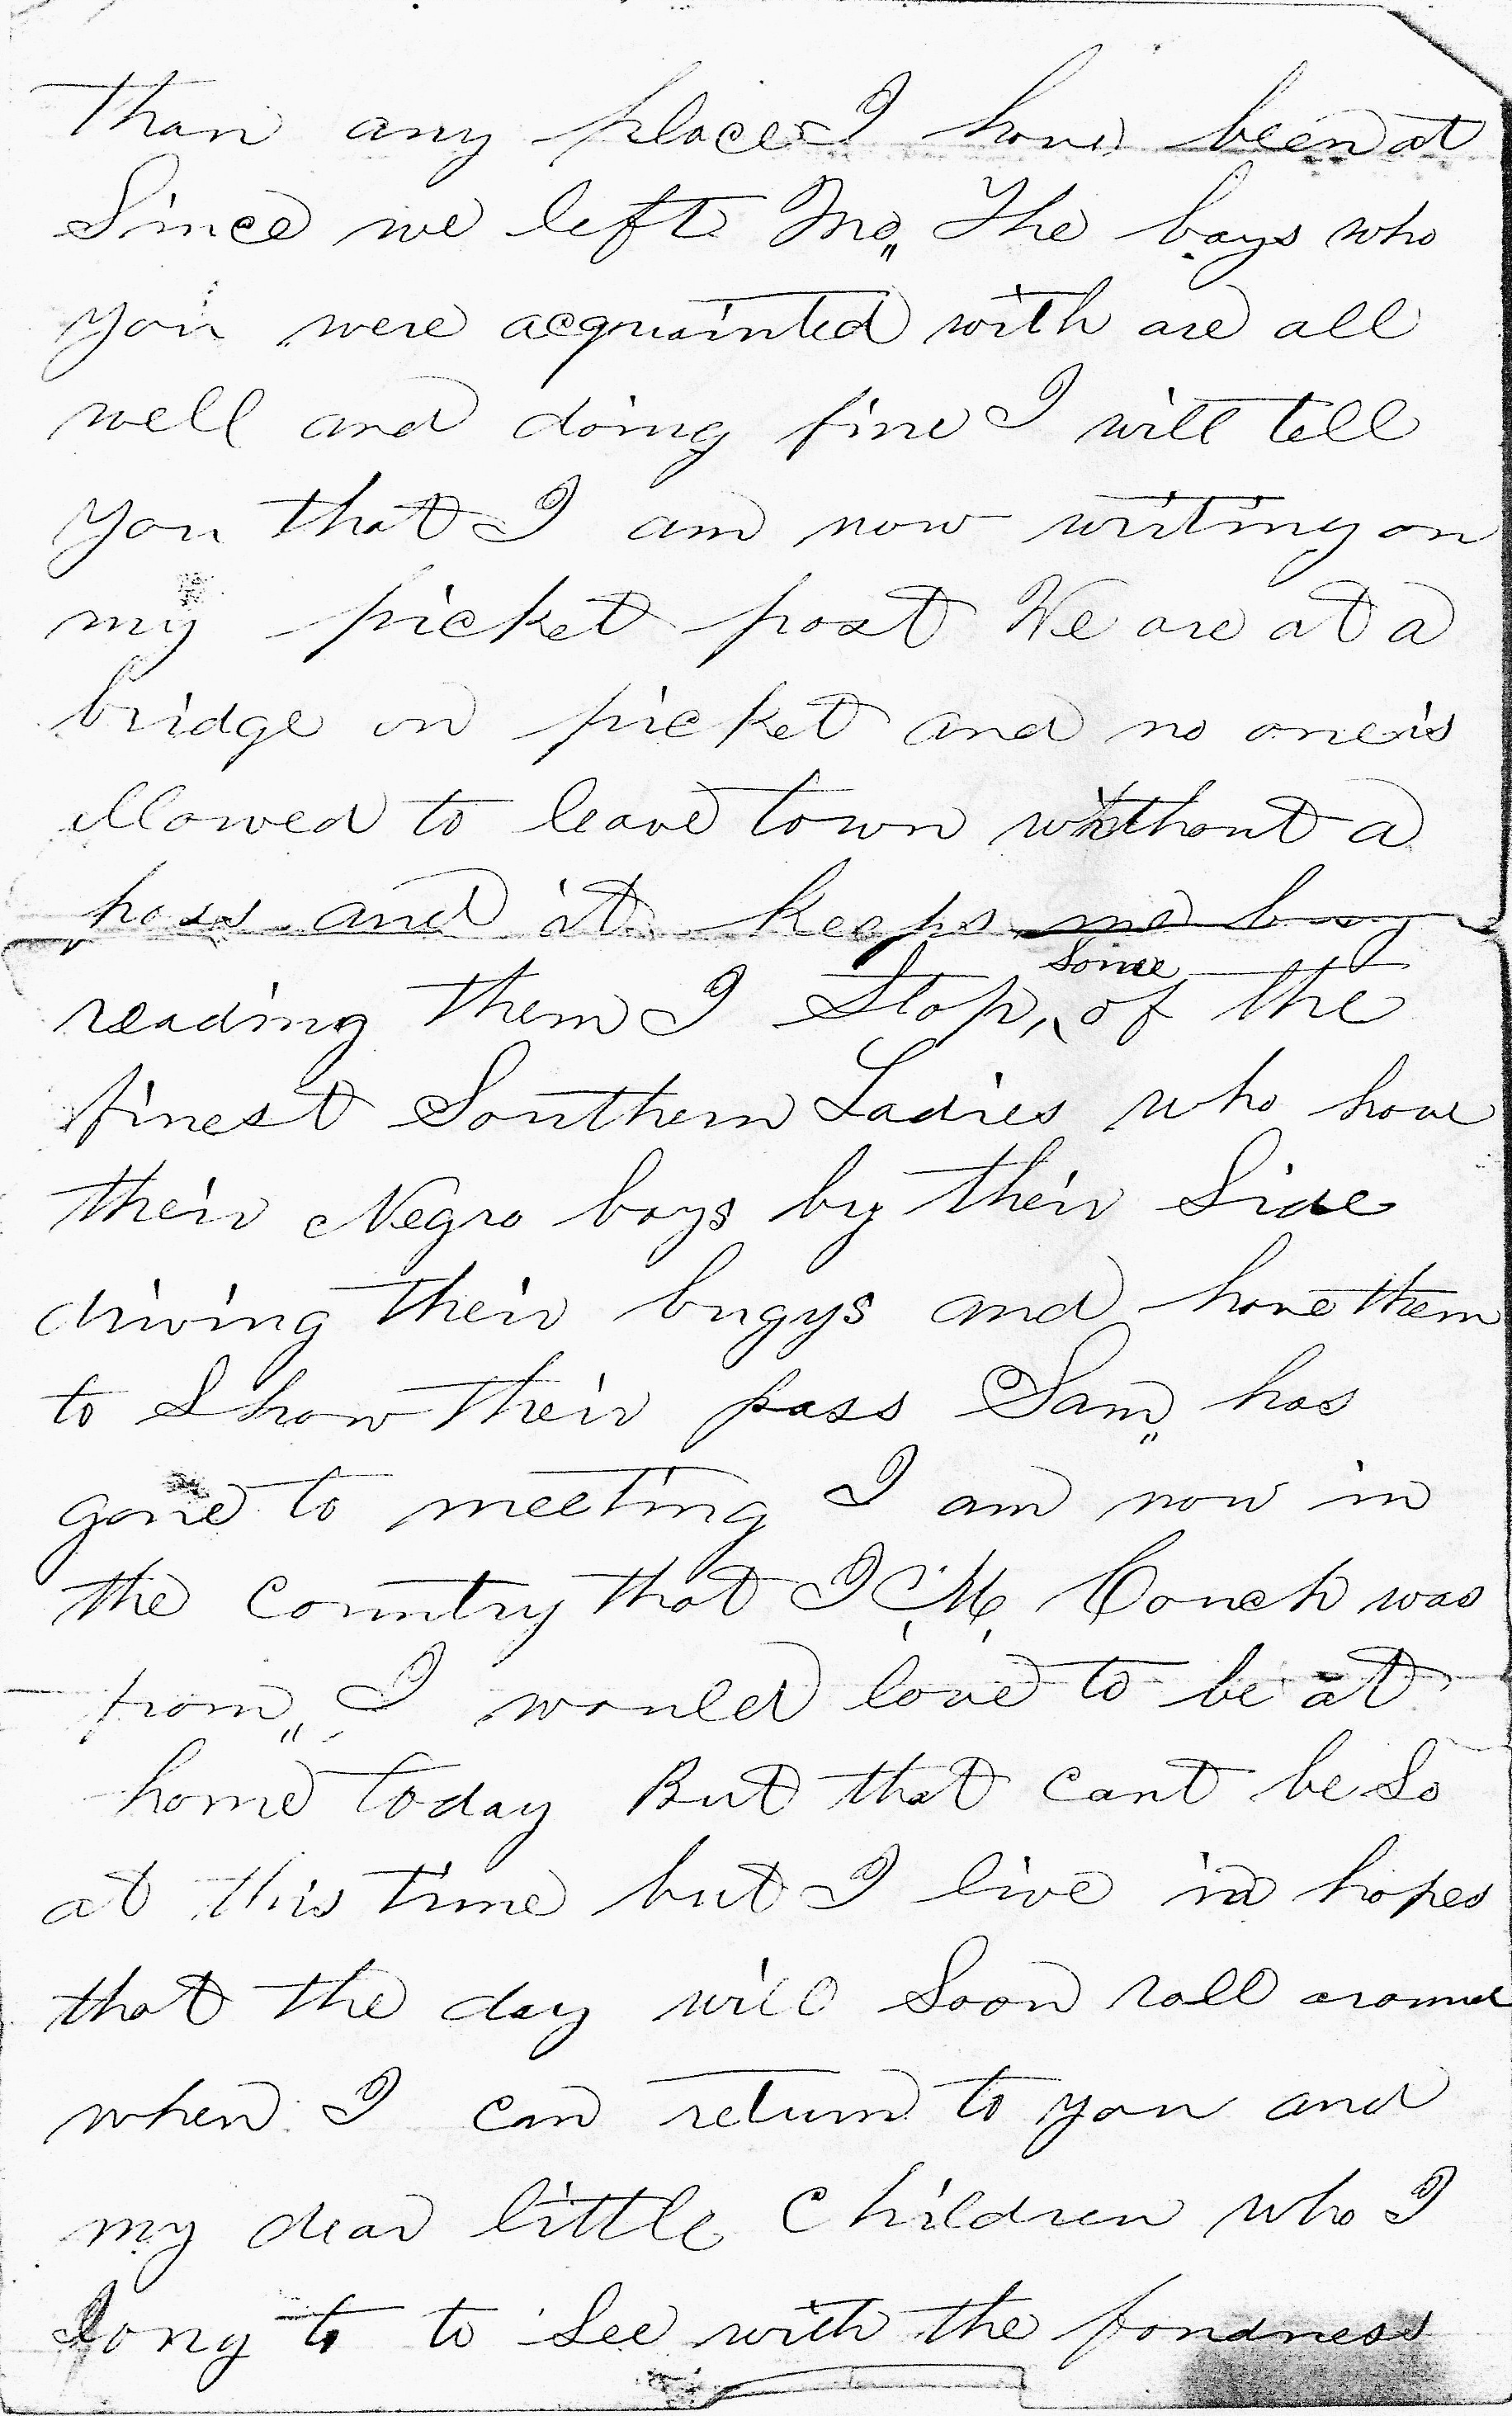 than any place I have been at
Since we left Mo,, The boys who
you were acquainted with are all
well and doing fine I will tell
you that I am now writing on
my picket post We are at a
bridge on picket and no one is
allowed to leave town without a
pass and it keeps me busy
reading them I Stop, some of the
finest Southern Ladies who have
their Negro boys by their Side
driving their bugys and have them
to Show their pass Sam,, has
gone to meeting I am now in
the Country that I C, M, Couch was
from,, I would love to be at
home today But that cant be So
at this time but I live in hopes
that the day will Soon roll around
when I can return to you and
my dear little Children who I
long to to See with the fondness